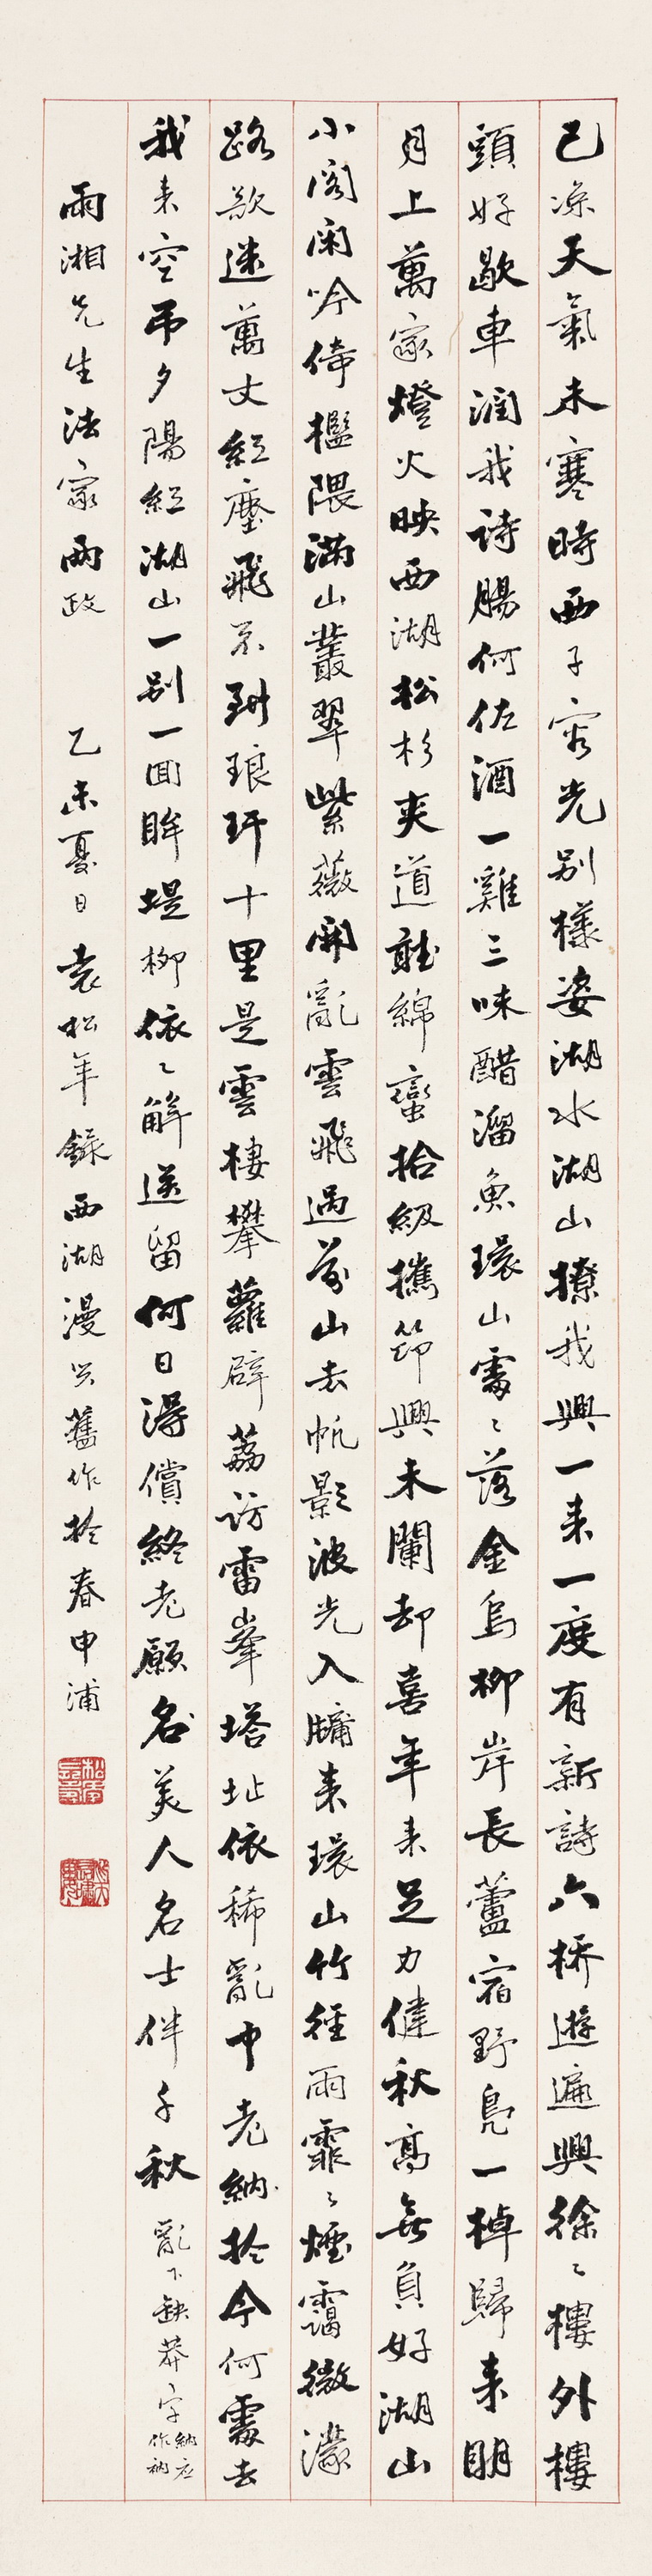 已涼天氣未寒時西子容光別樣姿湖水湖山撩我興一来一度有新詩六橋遊遍興徐〻樓外樓
頭好歇車潤我詩腸何佐酒一雞三味醋溜魚環山靄〻落金烏柳岸長蘆宿野鳧一棹歸来明
月上萬家燈火映西湖松杉夾道聽綿蠻拾級攜笻興未闌却喜年来足力健秋高無負好湖山
小閣閑吟倚檻隈滿山叢翠紫薇開亂雲飛過前山去帆影波光入牖来環山竹徑雨霏〻煙靄微濛
路欲迷萬丈紅塵飛不到琅玕十里是雲棲攀蘿辟荔訪雷峯塔址依稀亂中老納於今何處去
我来空弔夕陽紅湖山一別一回眸堤柳依〻解送留何日得償終老願名美人名士伴千秋 亂下缺莽字納应作衲
雨湘先生法家兩政 乙未夏日袁松年錄西湖漫興舊作於春申浦